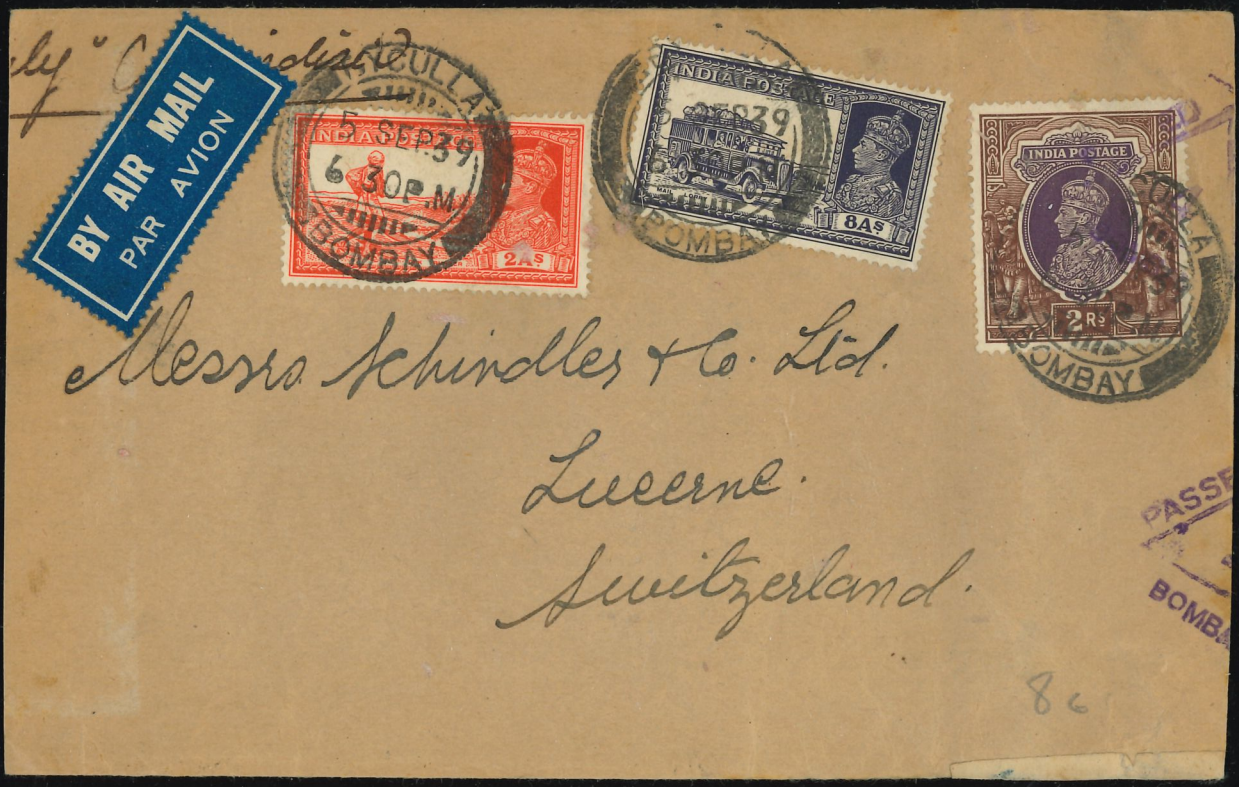 by
BY AIR MAIL
PAR AVION
BYCULLA
5 SEP.39
6 30P.M
BOMBAY
INDIA
2AS.
SEP39
BOMBAY
INDIA POSTAGE
MAIL LORRY
8AS
INDIA POSTAGE
2 RS
CULLA
BOMBAY
Messrs Schindler & Co. Ltd.
Lucerne.
Switzerland.
PASSE
BOMBA
86